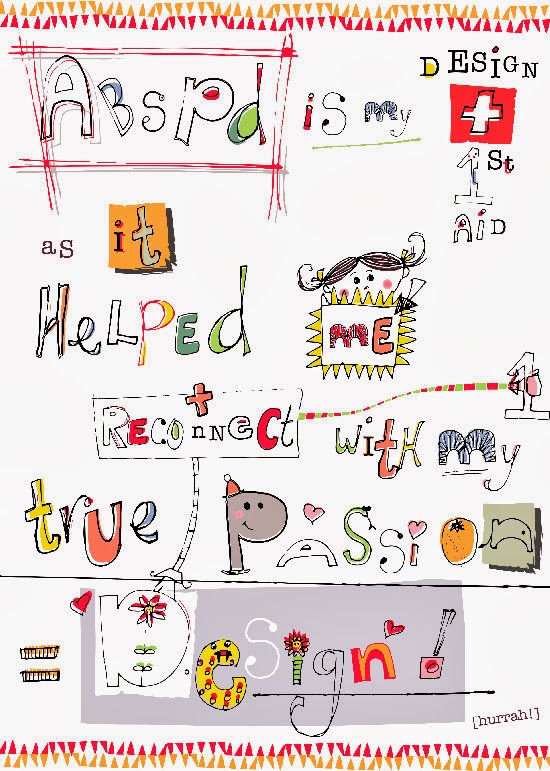 ABSPd is my DESIGN
1St
AiD
as it
HeLPED ME
RECOnNeCt 1
with my
true PaSSion
= DeSign!
[hurrah!]